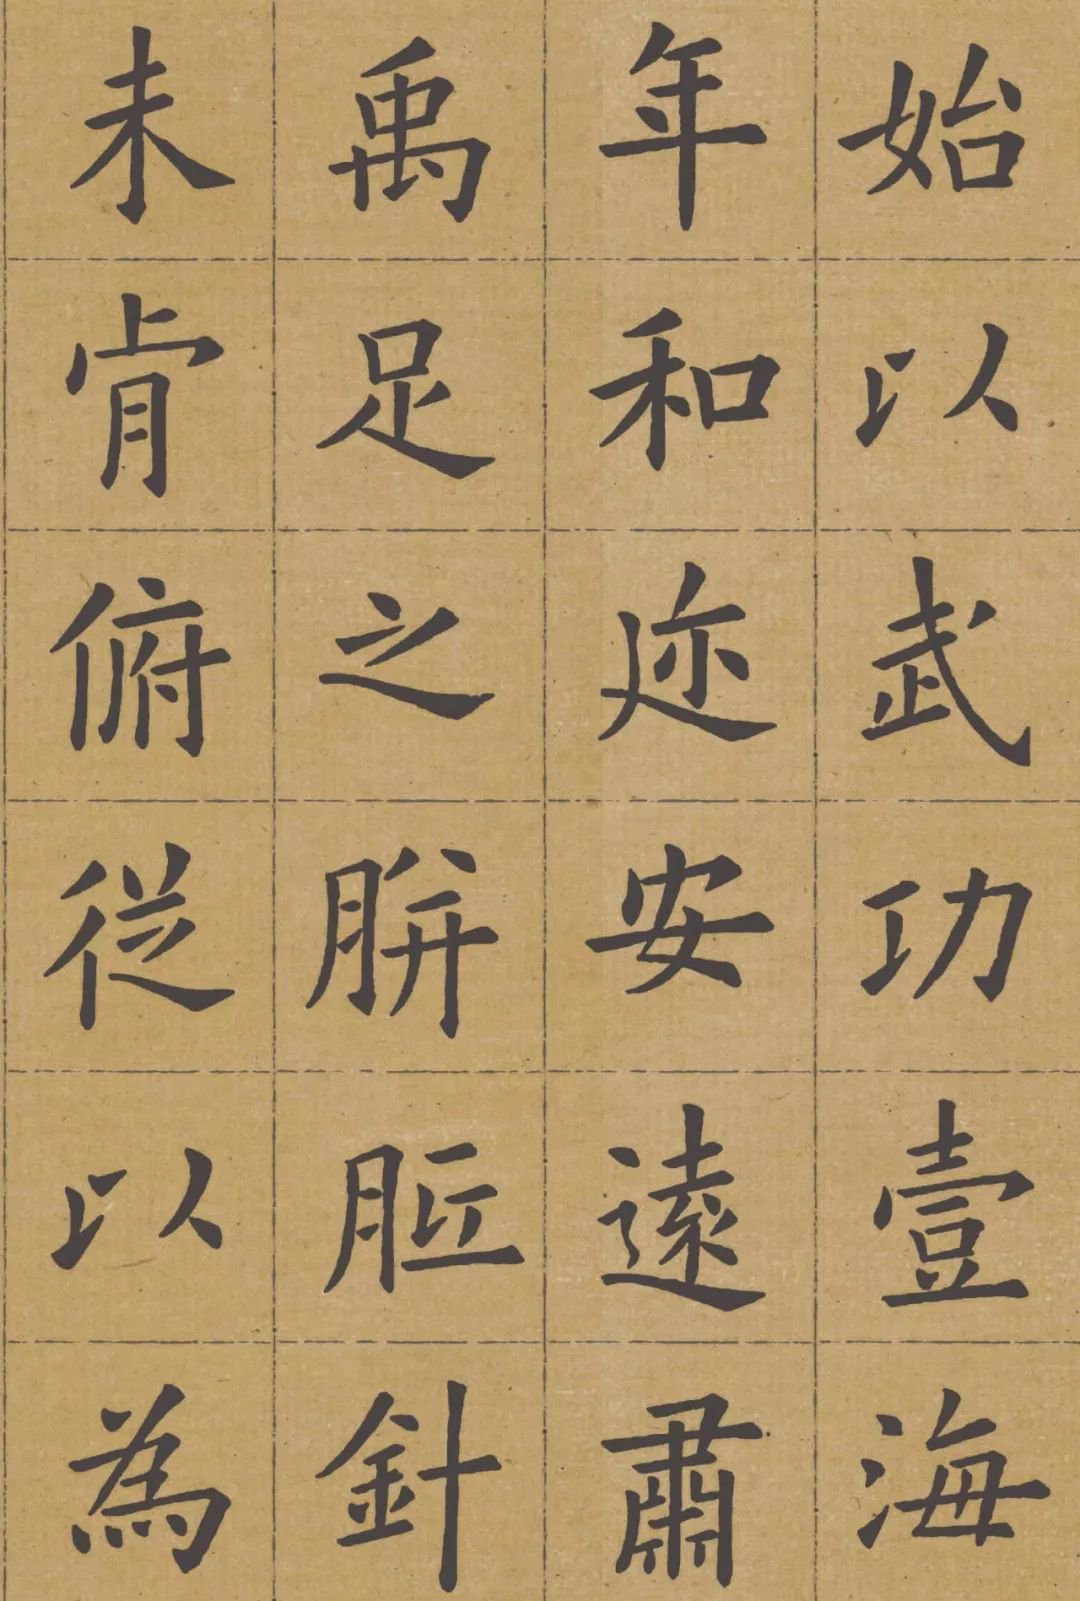 始以武功壹海
年和迩安遠肅
禹足之胼胝針
未肯俯從以為